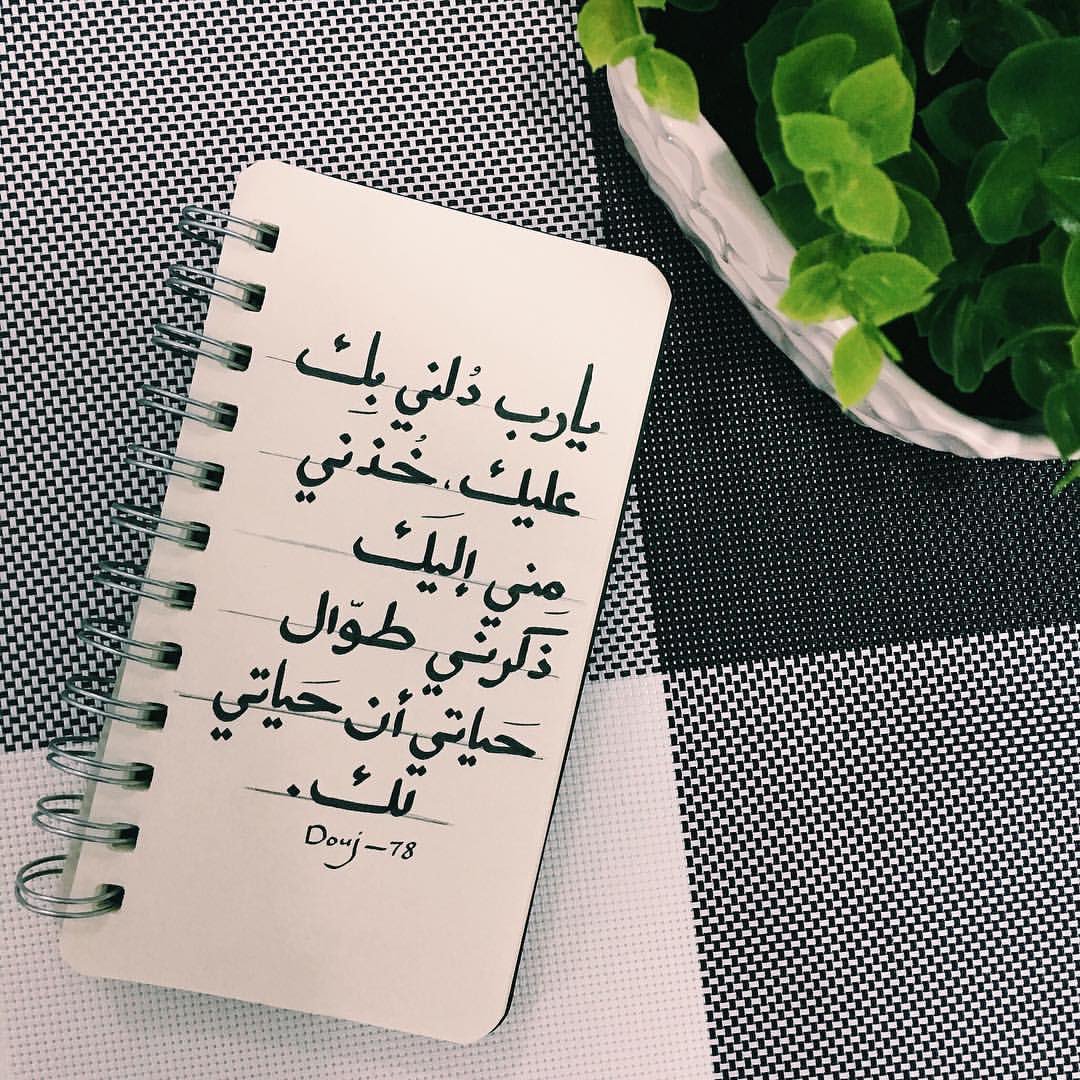 يارب دُلني بِك
عليك، خُذنِي
مِني إليَك
ذَكرني طوّال
حَياتي أن حَياتي
لك.
Douj-78